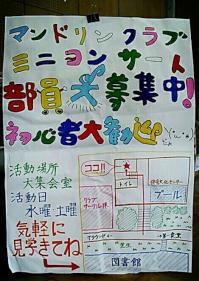 マンドリンクラブ
ミニコンサート
部員大募集中!
初心者大歓迎
活動場所
大集会室
活動日
水曜土曜
気軽に
見学きてね
ココ!!
トイレ
プール
図書館